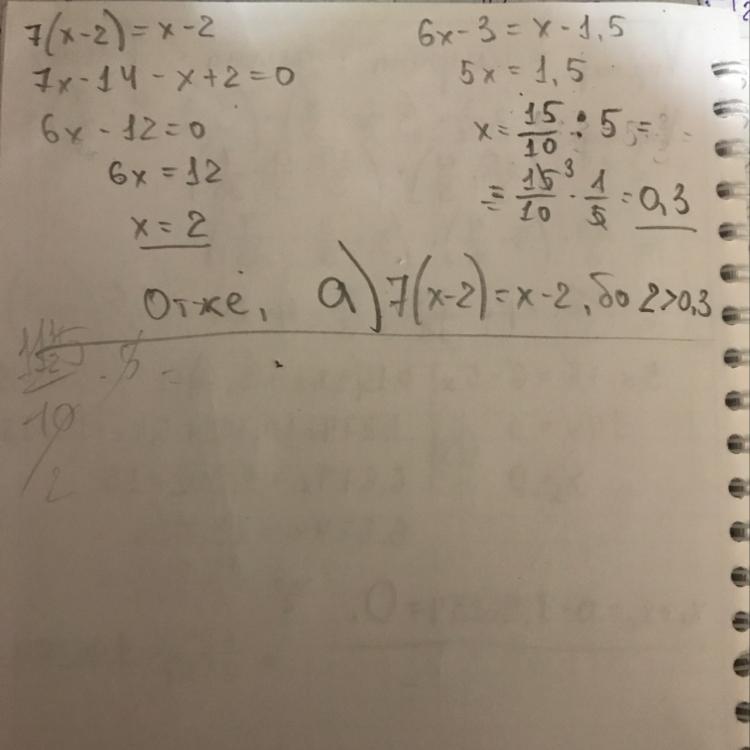 7(x-2)=x-2
7x-14-x+2=0
6x-12=0
6x=12
x=2
6x-3=x-1,5
5x=1,5
x=15/10:5=
=15/10 3·1/5=0,3
Отже, а) 7(x-2)=x-2, бо 2>0,3
10
2